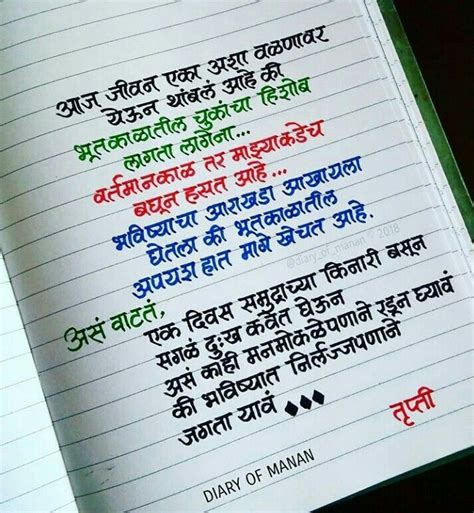 आज जीवन एका अशा वळणावर
येऊन थांबलं आहे की
भूतकाळातील चुकांचा हिशोब
लागता लागेना...
वर्तमानकाळ तर माझ्याकडेच
बघून हसत आहे...
भविष्याचा आराखडा आखायला
घेतला की भूतकाळातील
अपयश हात मागे खेचत आहे.
@diary_of_manan © 2018
असं वाटतं,
एक दिवस समुद्राच्या किनारी बसून
सगळं दुःख कवेत घेऊन
असं काही मनमोकळेपणाने रडून घ्यावं
की भविष्यात निर्लज्जपणाने
जगता यावं ♦♦♦
तृप्ती
DIARY OF MANAN